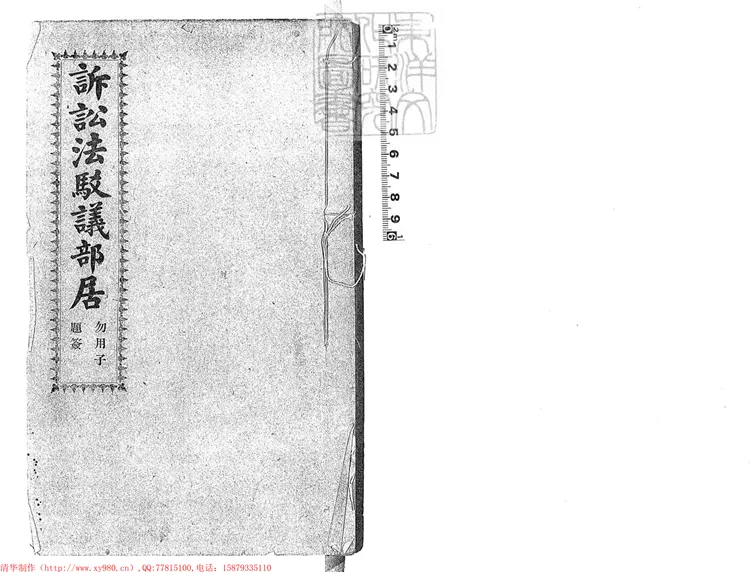 訴訟法駁議部居
勿用子
題簽
0 1 2 3 4 5 6 7 8 9
清华制作（http://www.xy980.cn）,QQ:77815100,电话：15879335110